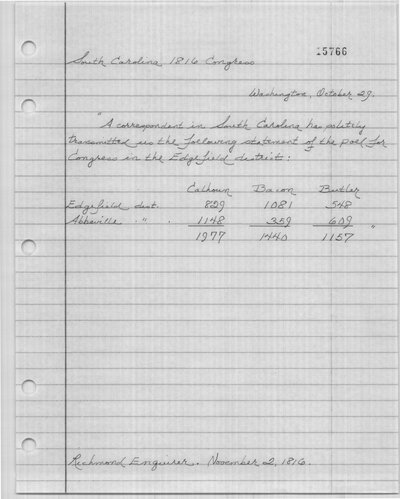 15766
South Carolina 1816 Congress
Washington, October 29.
"A correspondent in South Carolina has politely
transmitted us the following statement of the poll for
Congress in the Edgefield district:
Calhoun Bacon Butler
Edgefield dist. 829 1081 548
Abbeville " . 1148 359 609
1977 1440 1157 "
Richmond Enquirer. November 2, 1816.